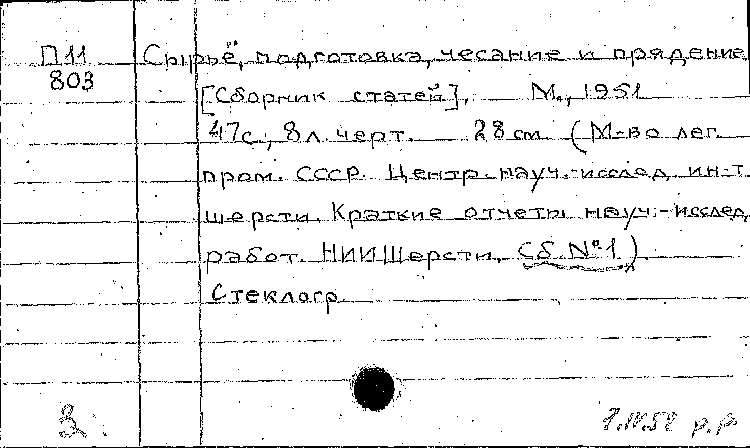 П11
803
Сырьё, подготовка, чесание и прядение
[Сборник статей], М., 1951
47с., 8л. черт. 28см (М-во лег.
пром. СССР. Центр. науч.-исслед. ин-т
шерсти. Краткие отчеты науч.-исслед.
работ. НИИШерсти, Сб. №1)
Стеклогр.
р.р.